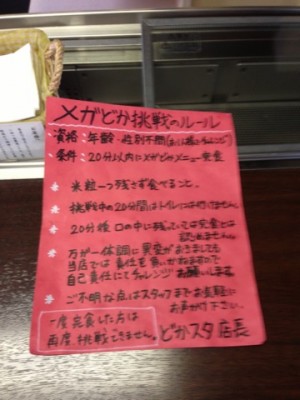 メガどか挑戦のルール
資格：年齢・性別不問
条件：20分以内にメガどかメニュー完食
＊ 米粒一つ残さず食べること。
＊ 挑戦中の20分間はトイレには行けません。
＊ 20分後 口の中に残っていては完食とは
認めません。
＊ 万が一体調に異変がおきましても
当店では責任を負いかねますので
自己責任にてチャレンジお願いします。
＊ ご不明な点はスタッフまでお気軽に
お声がけ下さい。
一度完食した方は
再度挑戦できません。
どかスタ店長